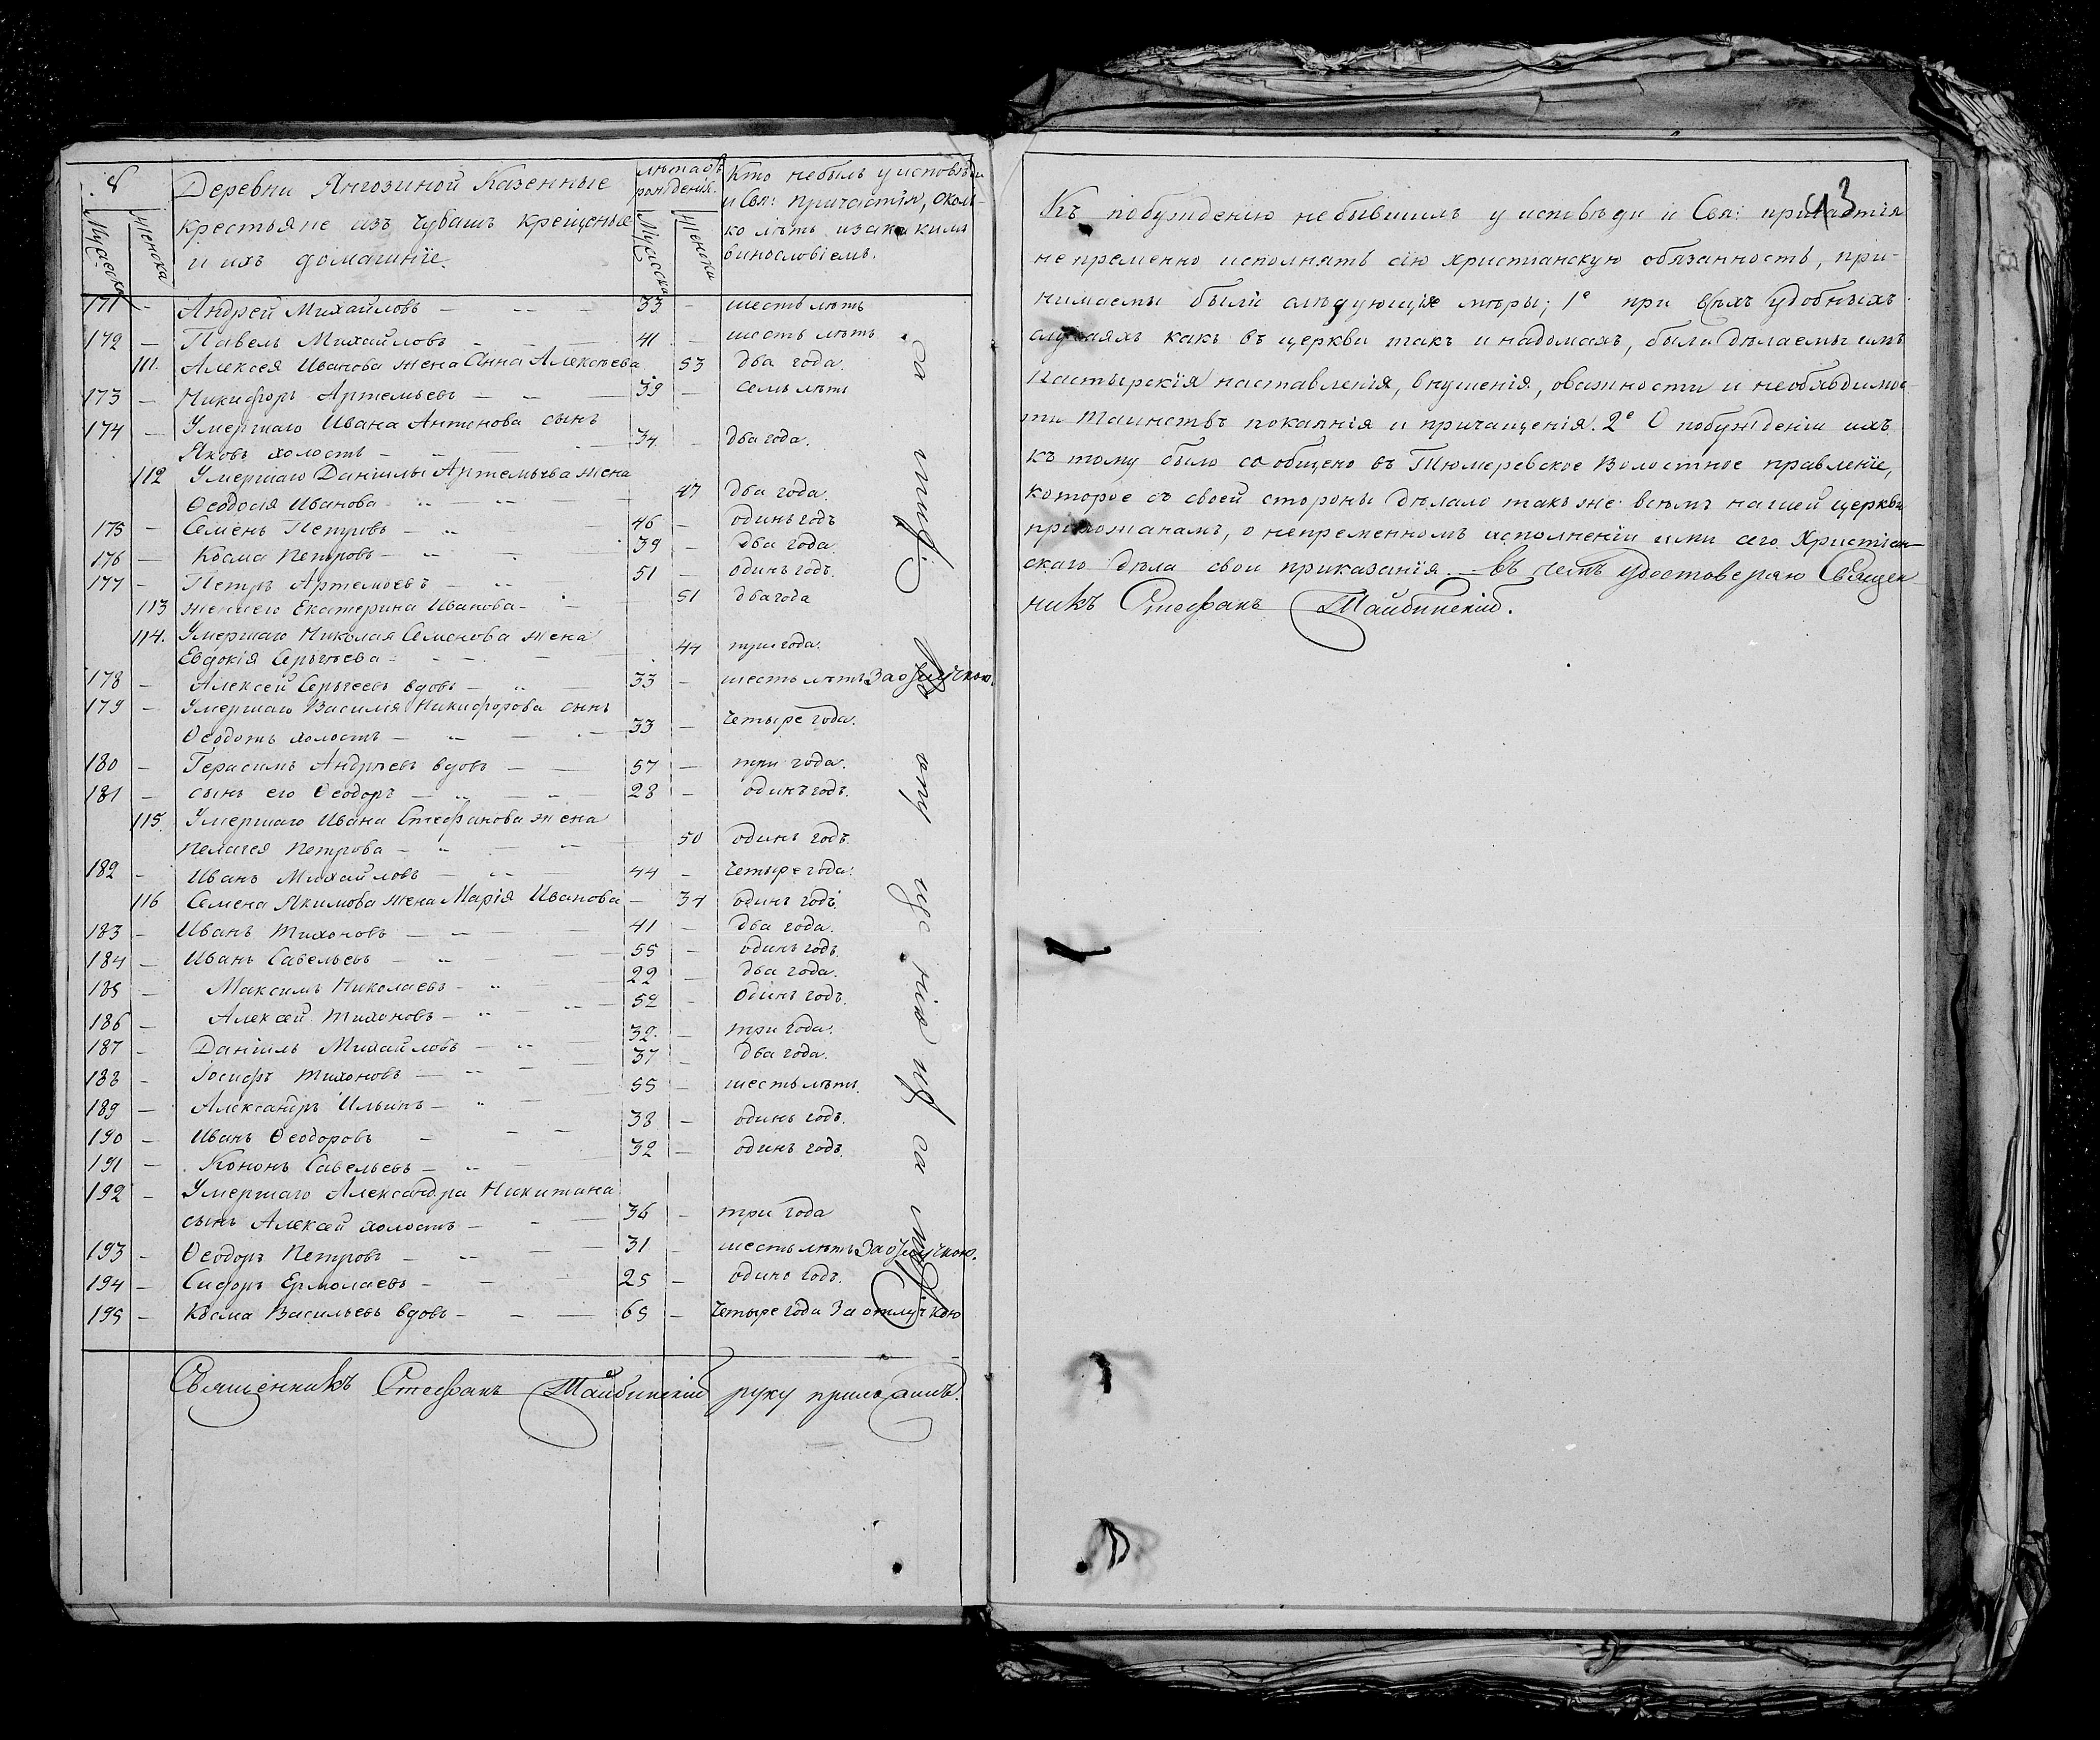 8
Мужеска
Женска
Деревни Янгозиной Казенные
крестьяне изъ Чувашъ крещеные
и ихъ домашніе.
лѣта отъ
рожденія.
Мужеска
Женска
Кто небылъ у исповѣди
и Свя: причастія, сколь-
ко лѣтъ и за какимъ
винословіемъ.
171 — Андрей Михайловъ — 33 — шесть лѣтъ
172 — Павелъ Михайловъ — 41 — шесть лѣтъ
111. Алексея Иванова жена Анна Алексѣева 53 два года.
173 — Никифоръ Артемьевъ — 39 — семь лѣтъ
174 — Умершаго Ивана Антонова сынъ
Яковъ холостъ — 34 — два года.
112 Умершаго Даніилы Артемьева жена
Ѳеодосія Иванова — 47 два года.
175 — Семенъ Петровъ — 46 — одинъ годъ
176 — Косма Петровъ — 39 — два года.
177 — Петръ Артемьевъ — 51 — одинъ годъ.
113 жена его Екатерина Иванова — 51 два года
114. Умершаго Николая Семенова жена
Евдокія Сергѣева — 44 три года.
178 — Алексей Сергеевъ вдовъ — 33 — шесть лѣтъ За отлучкою.
179 — Умершаго Василія Никифорова сынъ
Ѳеодотъ холостъ — 33 — четыре года.
180 — Герасимъ Андреевъ вдовъ — 57 — три года.
181 — сынъ его Ѳеодоръ — 28 — одинъ годъ.
115. Умершаго Ивана Стефанова жена
Пелагея Петрова — 50 одинъ годъ.
182 — Иванъ Михайловъ — 44 — четыре года.
116 Семена Якимова жена Марія Иванова — 34 одинъ годъ.
183 — Иванъ Тихоновъ — 41 — два года.
184 — Иванъ Савельевъ — 55 — одинъ годъ
185 — Максимъ Николаевъ — 22 — два года.
186 — Алексей Тихоновъ — 52 — одинъ годъ.
187 — Даніилъ Михайловъ — 32. — три года.
188 — Іосифъ Тихоновъ — 37 — два года.
189 — Александръ Ильинъ — 55 — шесть лѣтъ.
190 — Иванъ Ѳеодоровъ — 38 — одинъ годъ.
191 — Кононъ Савельевъ — 32 — одинъ годъ.
192 — Умершаго Александра Никитина
сынъ Алексей холостъ — 36 — три года
193 — Ѳеодоръ Петровъ — 31 — шесть лѣтъ За отлучкою.
194 — Сидоръ Ермолаевъ — 25 — одинъ годъ.
195 — Косма Васильевъ вдовъ — 65 — четыре года За отлучкою
Священникъ Стефанъ Тайбинскій руку приложилъ.
43
Къ побужденію небывшимъ у исповѣди и Свя: причастія
непременно исполнять сію христианскую обязанность, при-
нимаемы были слѣдующіе мѣры; 1е при всѣхъ удобныхъ
случаяхъ какъ въ церкви такъ и надомахъ, были дѣлаемы имъ
Пастырскія наставленія, внушенія, оважности и необходимос
ти Таинствъ покаянія и причащенія. 2е О побужденіи ихъ
къ тому было сообщено въ Тюмеревское Волостное правленіе,
которое съ своей стороны дѣлало такъ же всѣмъ нашей церкви
прихожанамъ, о непременномъ исполненіи ими сего Христіан—
скаго дѣла свои приказанія. — въ чемъ удостоверяю Священ
никъ Стефанъ Тайбинскій.